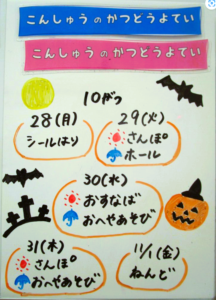 こんしゅうのかつどうよてい
こんしゅうのかつどうよてい
10がつ
28(月)
シールはり
29(火)
さんぽ
ホール
30(水)
おすなば
おへやあそび
31(木)
さんぽ
おへやあそび
11/1(金)
ねんど